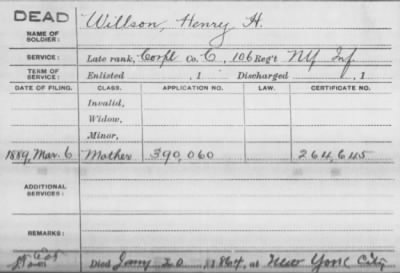 DEAD
NAME OF SOLDIER: Willson, Henry H.
SERVICE: Late rank, Corpl Co. C, 106 Reg't NY Inf
TERM OF SERVICE: Enlisted , 1 Discharged , 1
DATE OF FILING. CLASS. APPLICATION NO. LAW. CERTIFICATE NO.
Invalid,
Widow,
Minor,
1889, Mar. 6 Mother 390,060 264,645
ADDITIONAL SERVICES:
REMARKS:
Died Jany 20 1864, at New York City